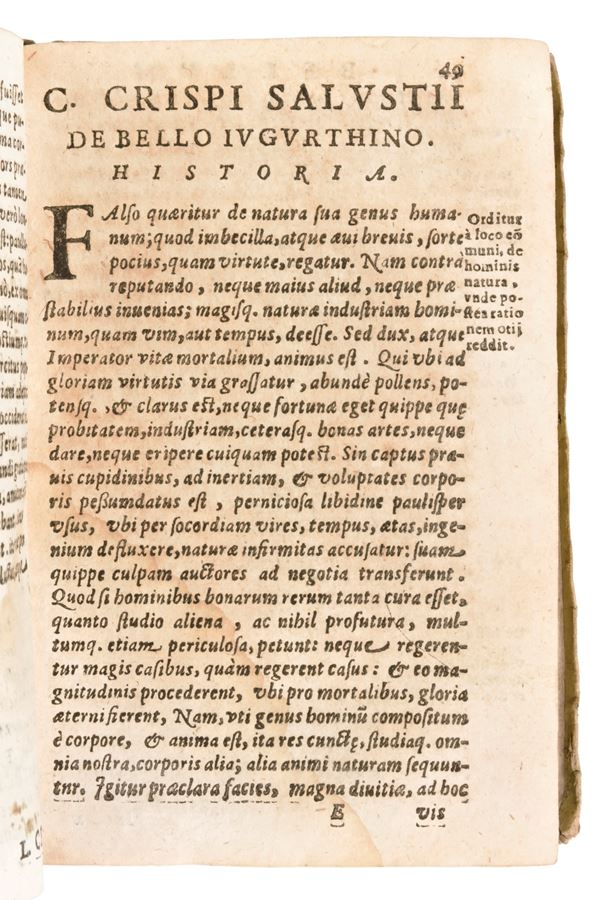 49
C. CRISPI SALVSTII
DE BELLO IVGVRTHINO.
HISTORIA.
FAlso quæritur de natura sua genus huma-
num; quod imbecilla, atque æui breuis, sorte
pocius, quam virtute, regatur. Nam contra
reputando, neque maius aliud, neque præ
stabilius inuenias; magisq. naturæ industriam homi-
num, quam vim, aut tempus, deesse. Sed dux, atque
Imperator vitæ mortalium, animus est. Qui vbi ad
gloriam virtutis via grassatur, abundè pollens, po-
tensq., & clarus est, neque fortunæ eget quippe quę
probitatem, industriam, ceterasq. bonas artes, neque
dare, neque eripere cuiquam potest. Sin captus præ-
uis cupidinibus, ad inertiam, & voluptates corpo-
ris peßumdatus est, perniciosa libidine paulisper
vsus, vbi per socordiam vires, tempus, ætas, inge-
nium defluxere, naturæ infirmitas accusatur: suam
quippe culpam auctores ad negotia transferunt.
Quod si hominibus bonarum rerum tanta cura esset,
quanto studio aliena, ac nihil profutura, mul-
tumq. etiam periculosa, petunt: neque regeren-
tur magis casibus, quàm regerent casus: & eo ma-
gnitudinis procederent, vbi pro mortalibus, gloria
æterni fierent, Nam, vti genus hominũ compositum
è corpore, & anima est, ita res cunctę, studiaq. om-
nia nostra, corporis alia; alia animi naturam sequun-
tnr. Igitur præclara facies, magna diuitiæ, ad hoc
E vis
Orditur
à loco cõ
muni, de
hominis
natura,
vnde po-
stea ratio
nem otij
reddit.